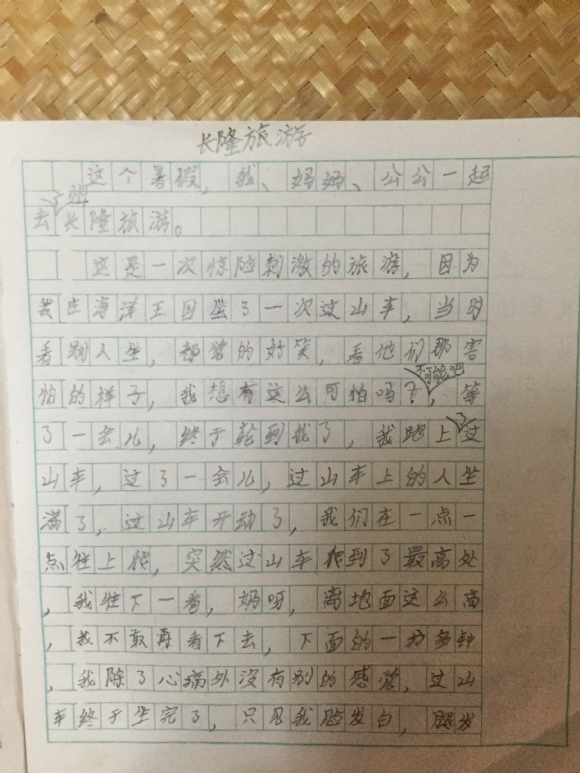 长隆旅游
这个暑假，我、妈妈、公公一起
去长隆旅游。
这是一次惊险刺激的旅游，因为
我在海洋王国坐了一次过山车，当时
看别人坐，都觉的好笑，看他们那害
怕的样子，我想有这么可怕吗？不可能吧，等
了一会儿，终于轮到我了，我跑上了过
山车，过了一会儿，过山车上的人坐
满了，过山车开动了，我们在一点一
点往上爬，突然过山车爬到了最高处
，我往下一看，妈呀，离地面这么高
，我不敢再看下去，下面的一分多钟
，我除了心痛外没有别的感觉，过山
车终于坐完了，只见我脸发白，腿发